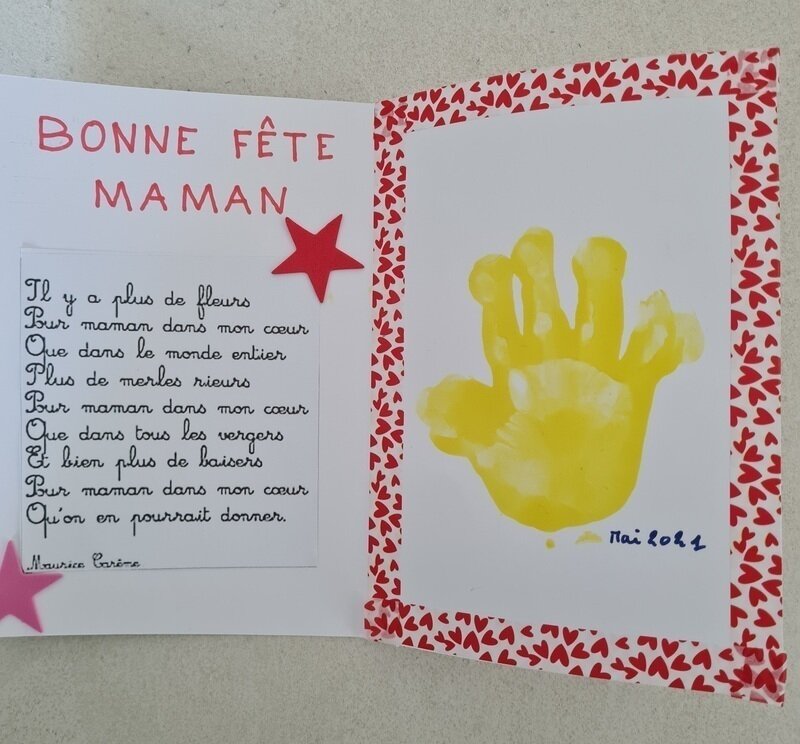 BONNE FÊTE
MAMAN
Il y a plus de fleurs
Pour maman dans mon cœur
Que dans le monde entier
Plus de merles rieurs
Pour maman dans mon cœur
Que dans tous les vergers
Et bien plus de baisers
Pour maman dans mon cœur
Qu'on en pourrait donner.
Maurice Carême
Mai 2021